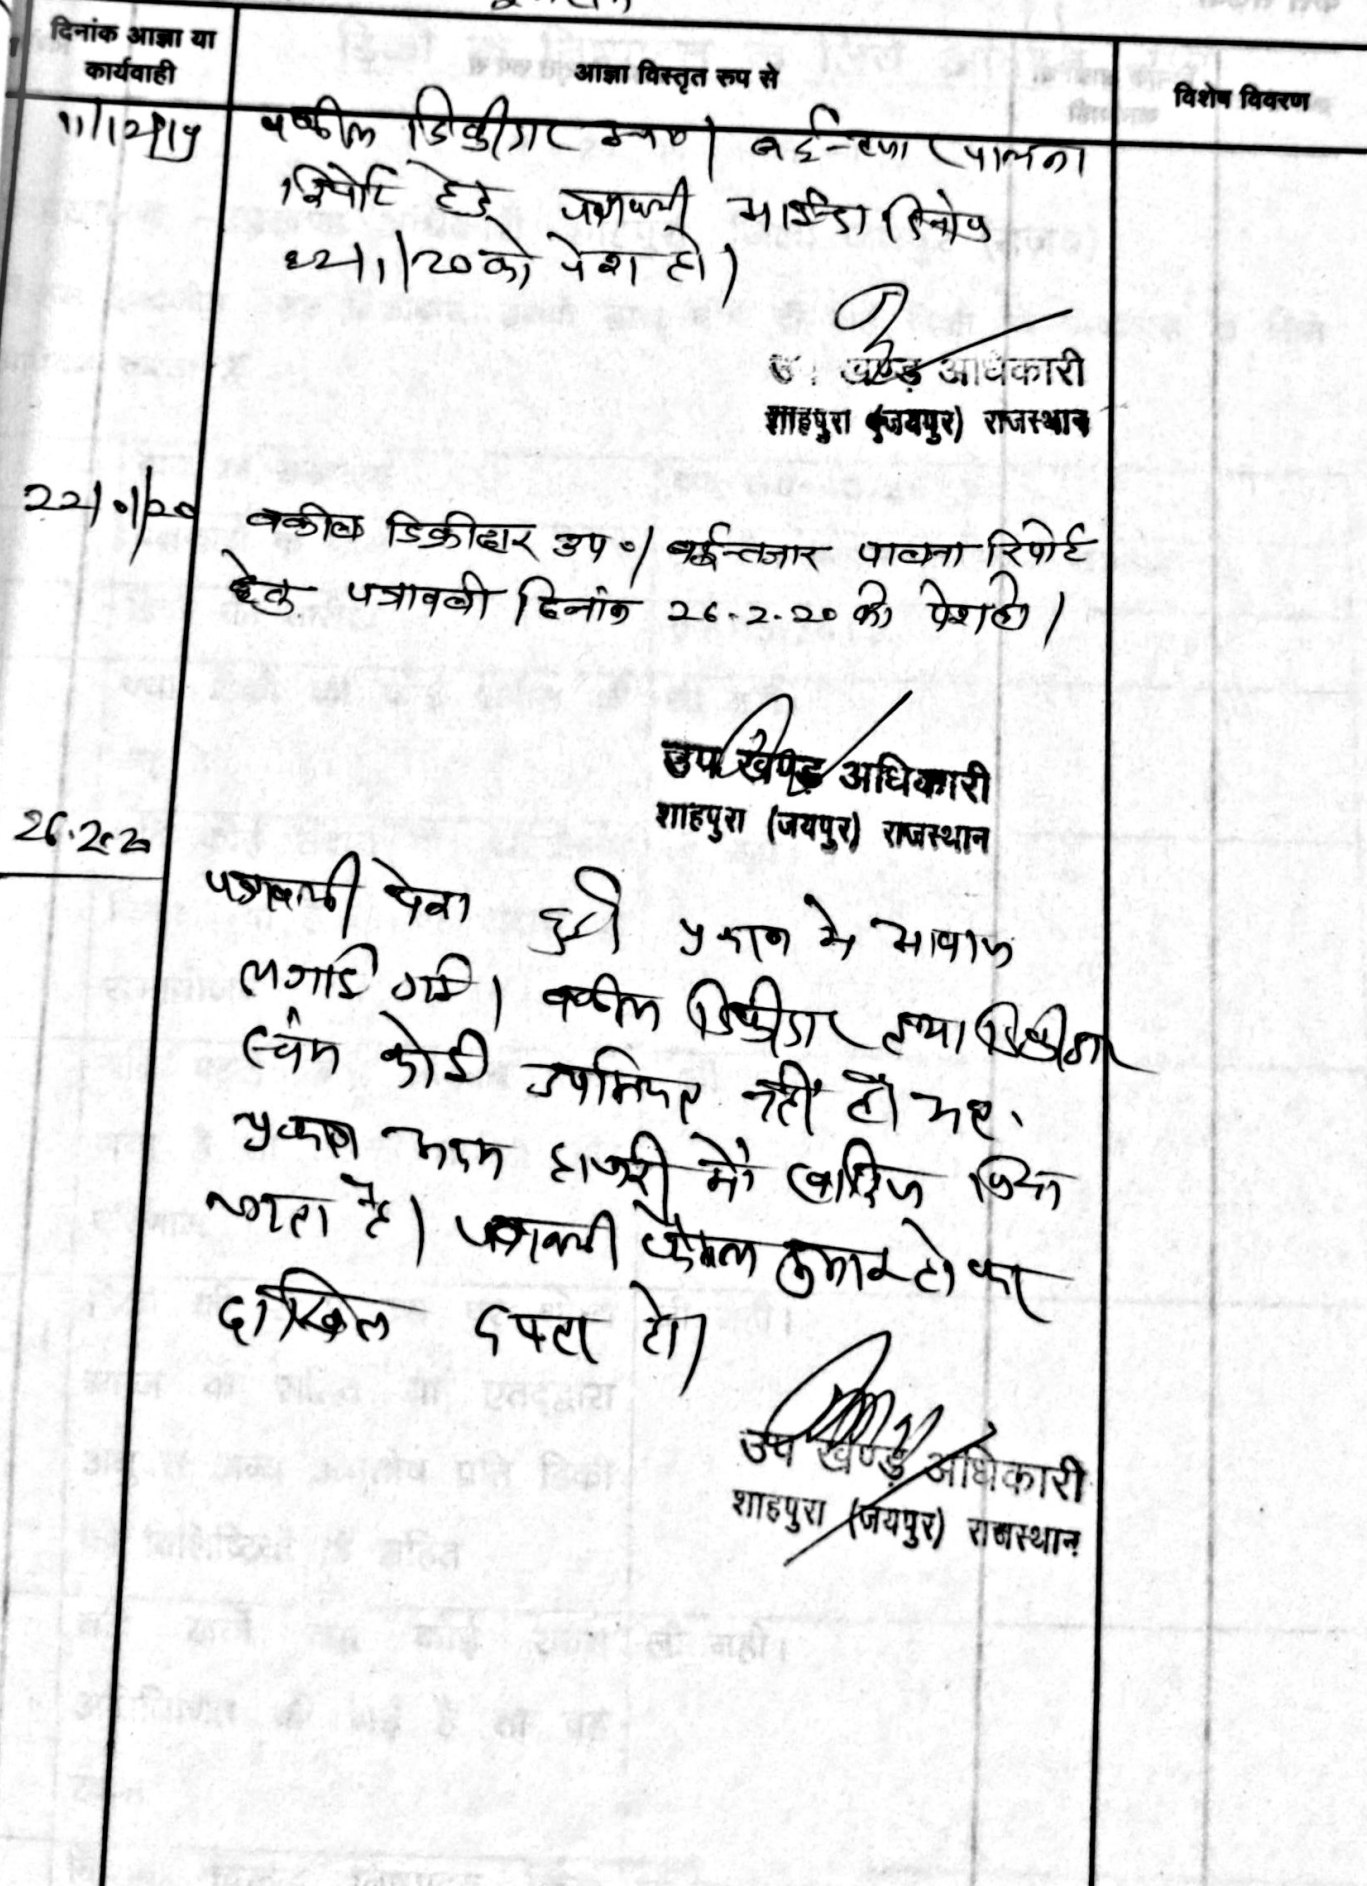 दिनांक आज्ञा या
कार्यवाही
आज्ञा विस्तृत रूप से
विशेष विवरण
11/12/19
वकील डिक्रीदार उप०। बईन्तजार पालना
रिपोर्ट हेतु पत्रावली आईन्दा दिनांक
22/1/20 को पेश हो।
उप खण्ड अधिकारी
शाहपुरा (जयपुर) राजस्थान
22/01/20
वकील डिक्रीदार उप०। बईन्तजार पालना रिपोर्ट
हेतु पत्रावली दिनांक 26.2.20 को पेश हो।
उप खण्ड अधिकारी
शाहपुरा (जयपुर) राजस्थान
26.2.20
पत्रावली पेश हुयी प्रकरण मे आवाज
लगाई गई। वकील डिक्रीदार तथा डिक्रीदार
स्वंम कोई उपस्थित नहीं है। अतः
प्रकरण अदम हाजरी में खारिज किया
जाता है। पत्रावली फैसल शुमार हो कर
दाखिल दफ्तर हो।
उप खण्ड अधिकारी
शाहपुरा (जयपुर) राजस्थान